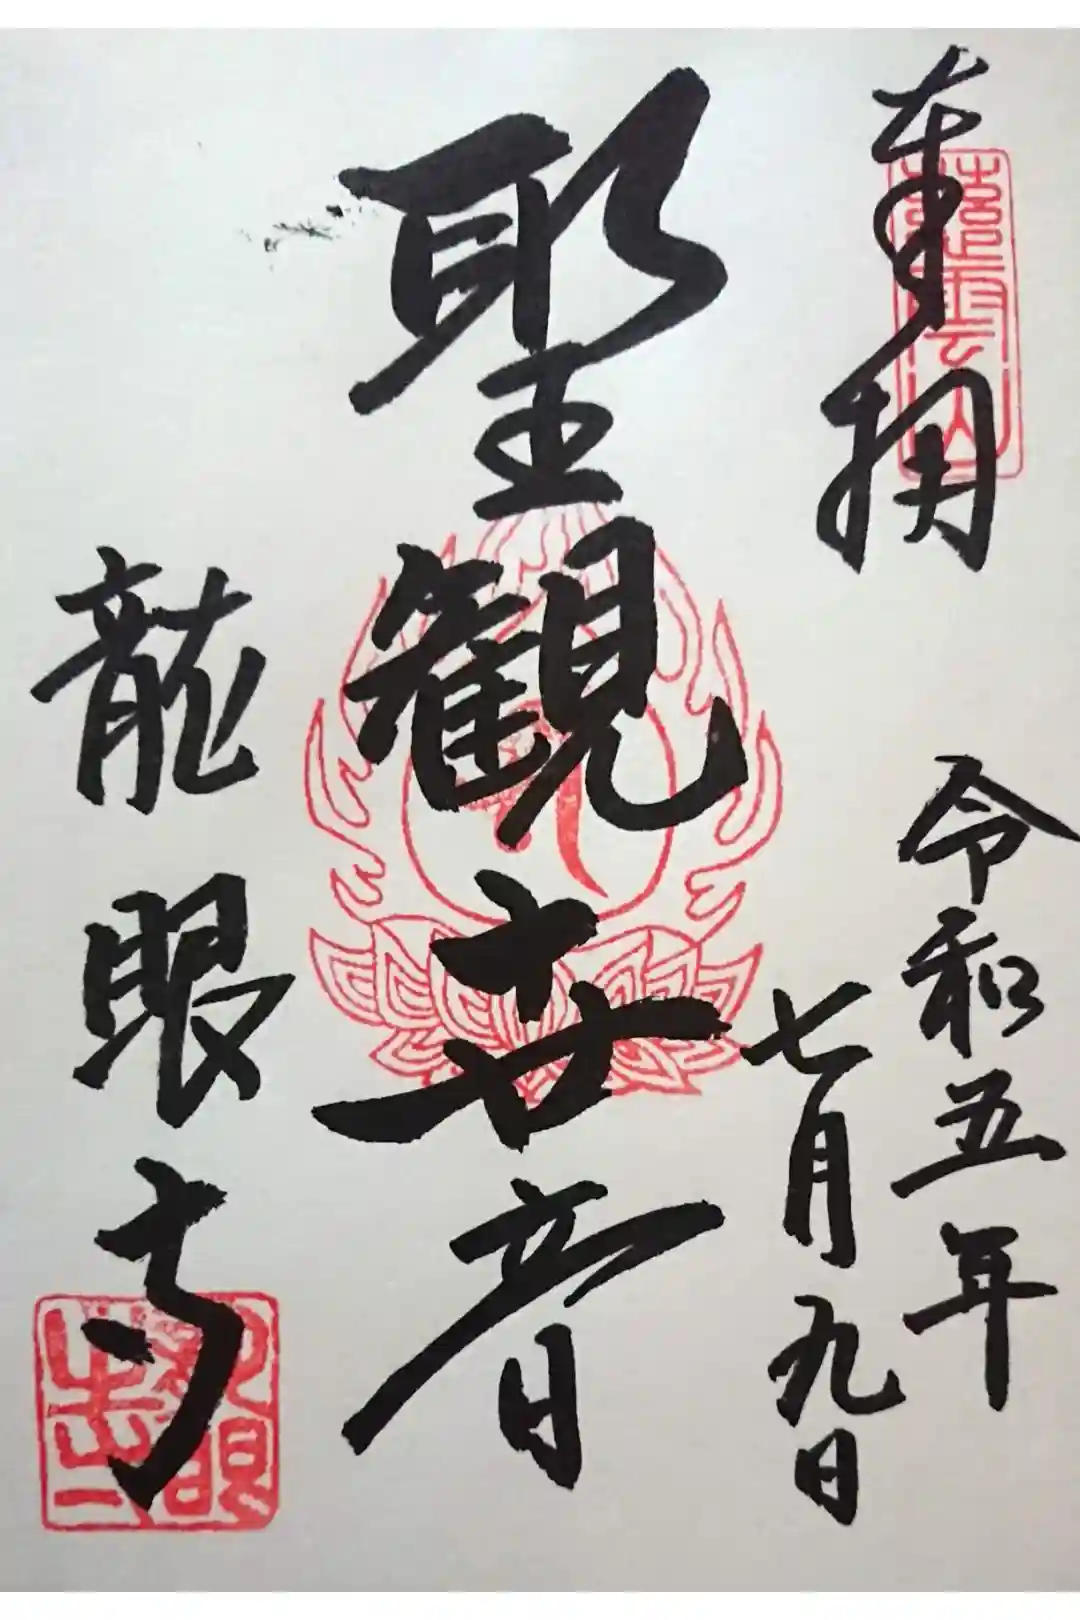 奉拝
令和五年
七月九日
聖観世音
龍眼寺